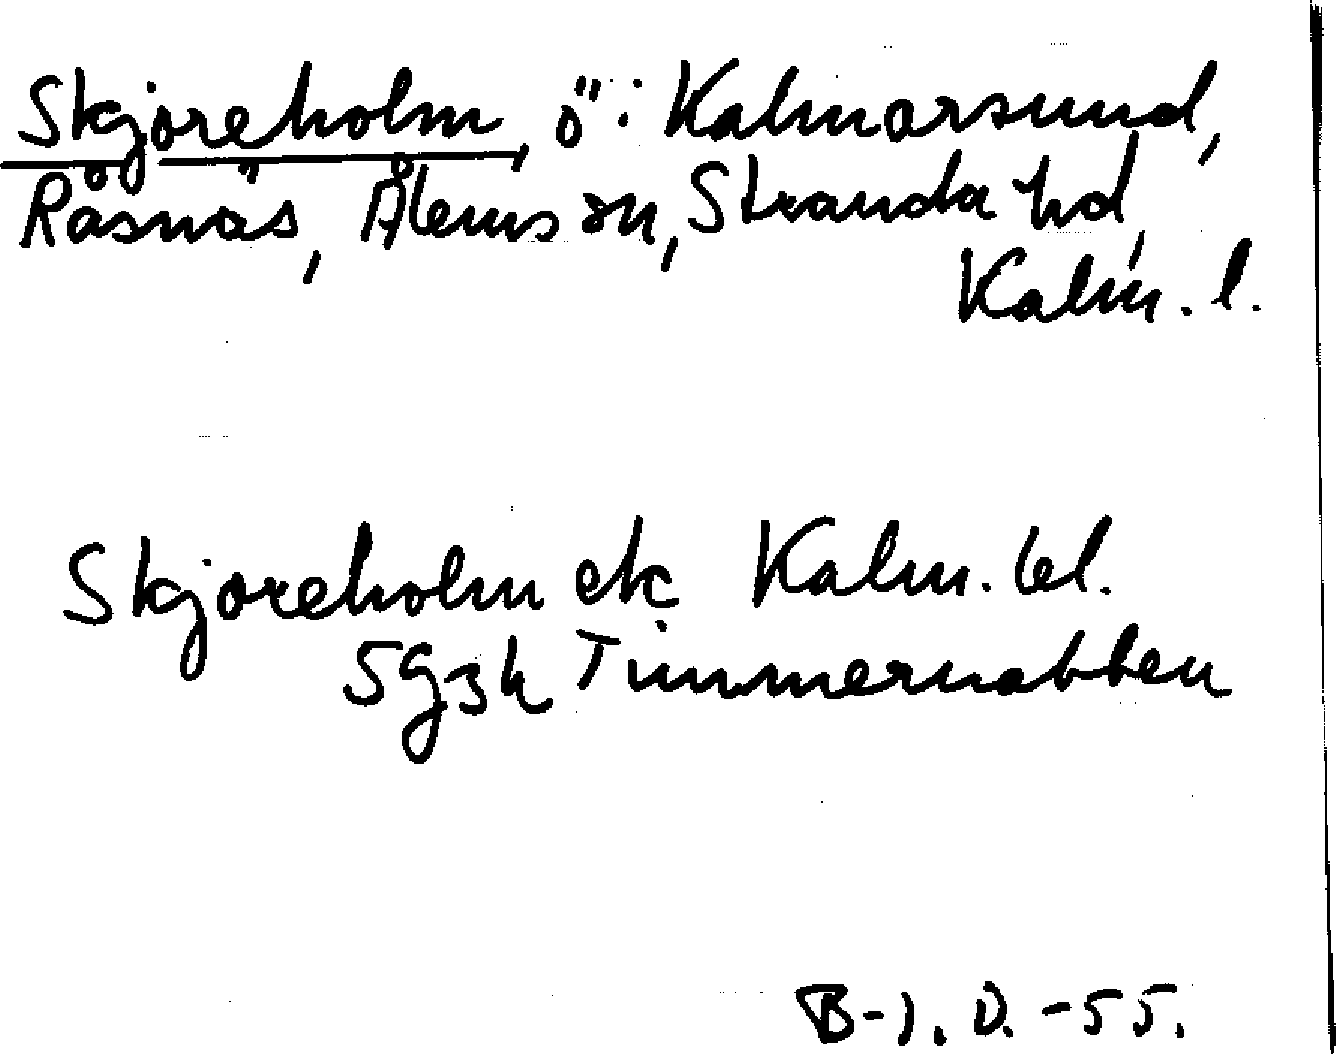 Skjoreholm, ö i Kalmarsund,
Råsnäs, Ålems sn, Stranda hd,
Kalm. l.
Skjoreholm ek Kalm. bl.
5g3h Timmernabben
B-J. D. -55.